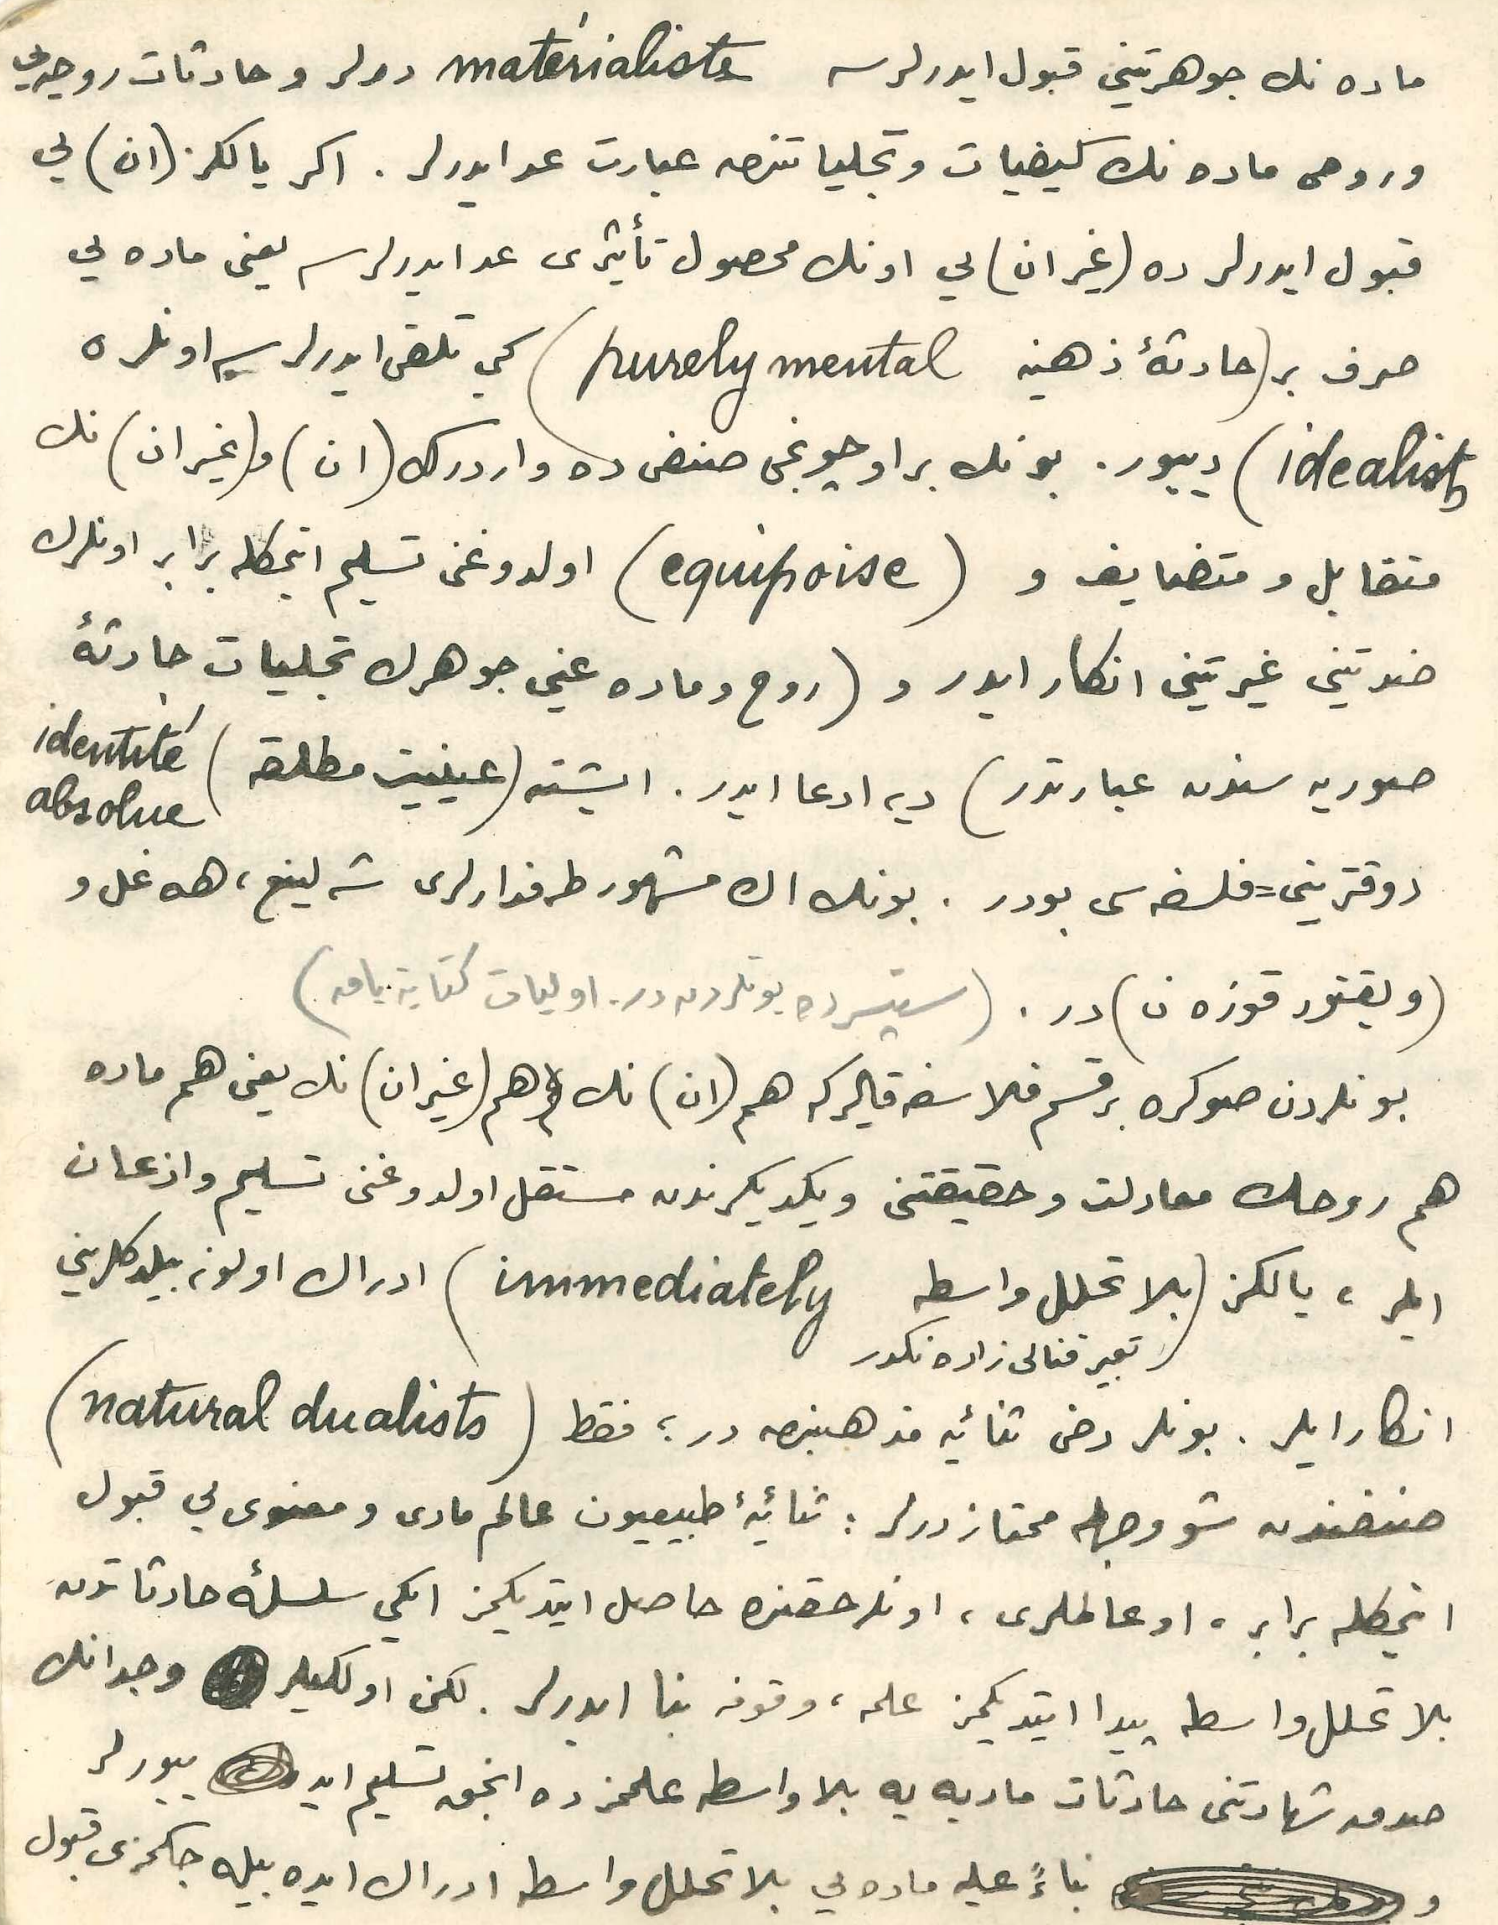 ماده نك جوهريتنى قبول ايدرلرسه materialists درلر و حادثات روحيه‌يى
و روحى ماده نك كيفيات و تجلياتندن عبارت عد ايدرلر . اكر يالكز (ان) ى
قبول ايدرلر ده (غير ان) ى اونك محصول تأثيرى عد ايدرلرسه يعنى ماده يى
صرف بر (حادثهٔ ذهنيه purely mental) كبى تلقى ايدرلرسه اونلره
(idealists) دييور . بونك بر اوچونجى صنفى ده واردركه (ان) و (غير ان) نك
متقابل و متضايف و (equipoise) اولدوغنى تسليم ايتمكله برابر اونلرك
ضديتنى غيريتنى انكار ايدر و (روح و ماده عينى جوهرك تجليات حادثهٔ
صوريه سندن عبارتدر) ديه ادعا ايدر . ايشته (عينيت مطلقه) (identité absolue
دوقترينى = فلسفه سى بودر . بونك اك مشهور طرفدارلرى شه لينغ ، هه غل و
(ويقتور قوزه ن) در . (سپنسر ده بونلردندر . اوليات كتابنه باق)
بونلردن صوكره بر قسم فلاسفه قالير كه هم (ان) نك هم (غير ان) نك يعنى هم ماده
هم روحك معادلت و حقيقتنى و يكديكرندن مستقل اولدوغنى تسليم و اذعان
ايلر ، يالكز (بلا تخلل واسطه immediately) ادراك اولونه بيلدكلرينى
تعبير قنالى زاده نكدر
انكار ايلر . بونلر دخى ثنائيه مذهبندن در ؛ فقط (natural dualists)
صنفندن شو وجهله ممتازدرلر : ثنائيهٔ طبيعيون عالم مادى و معنوى يى قبول
ايتمكله برابر ، او عالملرى ، اونلر حقنده حاصل ايتديكمز ايكى سلسلهٔ حادثاتدن
بلا تخلل واسطه پيدا ايتديكمز علمه ، وقوفه بنا ايدرلر . لكن اولكيلر وجدانك
صدق شهادتنى حادثات ماديه يه بلا واسطه علممزده انجق تسليم ايد ييورلر
و بناءً عليه ماده يى بلا تخلل واسطه ادراك ايده بيله جكمزى قبول